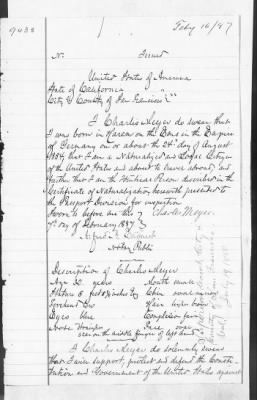 9438
Feby 16/97
No. Issued
United States of America
State of California
City & County of San Francisco
I Charles Meyer do swear that
I was born in on the in the Empire
of Germany on or about the 24th day of August
1854, that I am a Naturalized and Loyal Citizen
of the United States and about to travel abroad, and
further that I am the Identical Person described in the
Certificate of Naturalization herewith presented to
the Passport Division for inspection
Sworn to before me this Charles Meyer
day of February 1897
Notary Public
Description of Charles Meyer
Age years Mouth small
Stature 5 feet inches Eng Chin round
Forehead Hair light brown
Eyes blue Complexion fair
Nose Face oval
scar on the middle finger of left hand
I Charles Meyer do solemnly swear
that I will support, protect and defend the Consti-
tution and Government of the United States against